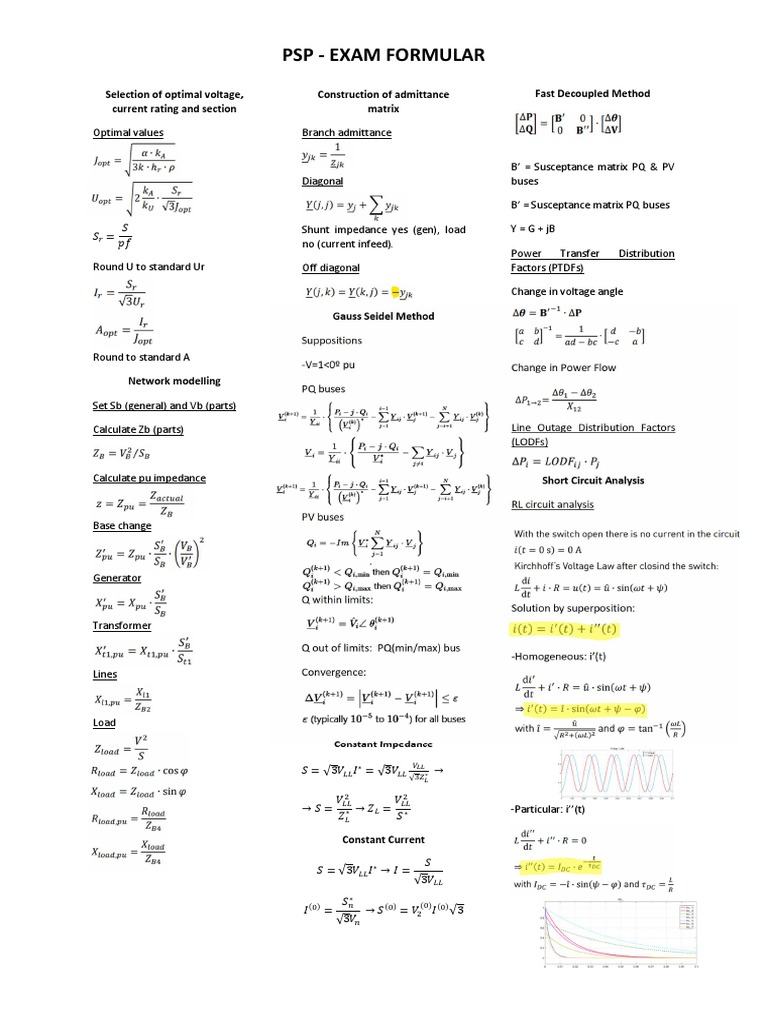 PSP - EXAM FORMULAR
Selection of optimal voltage,
current rating and section
Optimal values
J_opt = √(α · k_A / (3k · h_r · ρ))
U_opt = √(2 k_A/k_U · S_r/(√3 J_opt))
S_r = S/pf
Round U to standard Ur
I_r = S_r/(√3 U_r)
A_opt = I_r/J_opt
Round to standard A
Network modelling
Set Sb (general) and Vb (parts)
Calculate Zb (parts)
Z_B = V_B^2/S_B
Calculate pu impedance
z = Z_pu = Z_actual/Z_B
Base change
Z'_pu = Z_pu · S'_B/S_B · (V_B/V'_B)^2
Generator
X'_pu = X_pu · S'_B/S_B
Transformer
X'_t1,pu = X_t1,pu · S'_B/S_t1
Lines
X_l1,pu = X_l1/Z_B2
Load
Z_load = V^2/S
R_load = Z_load · cos φ
X_load = Z_load · sin φ
R_load,pu = R_load/Z_B4
X_load,pu = X_load/Z_B4
Construction of admittance
matrix
Branch admittance
y_jk = 1/z_jk
Diagonal
Y(j,j) = y_j + ∑_k y_jk
Shunt impedance yes (gen), load
no (current infeed).
Off diagonal
Y(j,k) = Y(k,j) = −y_jk
Gauss Seidel Method
Suppositions
-V=1<0º pu
PQ buses
V_i^(k+1) = 1/Y_ii · {(P_i − j · Q_i)/(V_i^(k))^* − ∑_{j=1}^{i−1} Y_ij · V_j^(k+1) − ∑_{j=i+1}^{N} Y_ij · V_j^(k)}
V_i = 1/Y_ii · {(P_i − j · Q_i)/V_i^* − ∑_{j≠i} Y_ij · V_j}
V_i^(k+1) = 1/Y_ii · {(P_i − j · Q_i)/(V_i^(k))^* − ∑_{j=1}^{i−1} Y_ij · V_j^(k+1) − ∑_{j=i+1}^{N} Y_ij · V_j^(k)}
PV buses
Q_i = −Im {V_i^* ∑_{j=1}^{N} Y_ij · V_j}
Q_i^(k+1) < Q_i,min then Q_i^(k+1) = Q_i,min
Q_i^(k+1) > Q_i,max then Q_i^(k+1) = Q_i,max
Q within limits:
V_i^(k+1) = V̂_i∠ θ_i^(k+1)
Q out of limits: PQ(min/max) bus
Convergence:
ΔV_i^(k+1) = |V_i^(k+1) − V_i^(k)| ≤ ε
ε (typically 10^−5 to 10^−4) for all buses
Constant Impedance
S = √3V_LL I^* = √3V_LL V_LL/(√3Z_L^*) →
→ S = V_LL^2/Z_L^* → Z_L = V_LL^2/S^*
Constant Current
S = √3V_LL I^* → I = S/(√3V_LL)
I^(0) = S_n^*/(√3V_n) → S^(0) = V_2^(0) I^(0)√3
Fast Decoupled Method
[ΔP ΔQ] = [B′ 0 0 B′′] · [Δθ ΔV]
B' = Susceptance matrix PQ & PV
buses
B' = Susceptance matrix PQ buses
Y = G + jB
Power Transfer Distribution
Factors (PTDFs)
Change in voltage angle
Δθ = B′^−1 · ΔP
[a b c d]^−1 = 1/(ad − bc) · [d −b −c a]
Change in Power Flow
ΔP_1→2 = (Δθ_1 − Δθ_2)/X_12
Line Outage Distribution Factors
(LODFs)
ΔP_i = LODF_ij · P_j
Short Circuit Analysis
RL circuit analysis
With the switch open there is no current in the circuit
i(t = 0 s) = 0 A
Kirchhoff´s Voltage Law after closind the switch:
L di/dt + i · R = u(t) = û · sin(ωt + ψ)
Solution by superposition:
i(t) = i′(t) + i′′(t)
-Homogeneous: i'(t)
L di′/dt + i′ · R = û · sin(ωt + ψ)
⇒ i′(t) = î · sin(ωt + ψ − φ)
with î = û/√(R^2+(ωL)^2) and φ = tan^−1 (ωL/R)
-Particular: i''(t)
L di′′/dt + i′′ · R = 0
⇒ i′′(t) = I_DC · e^(−t/τ_DC)
with I_DC = −î · sin(ψ − φ) and τ_DC = L/R